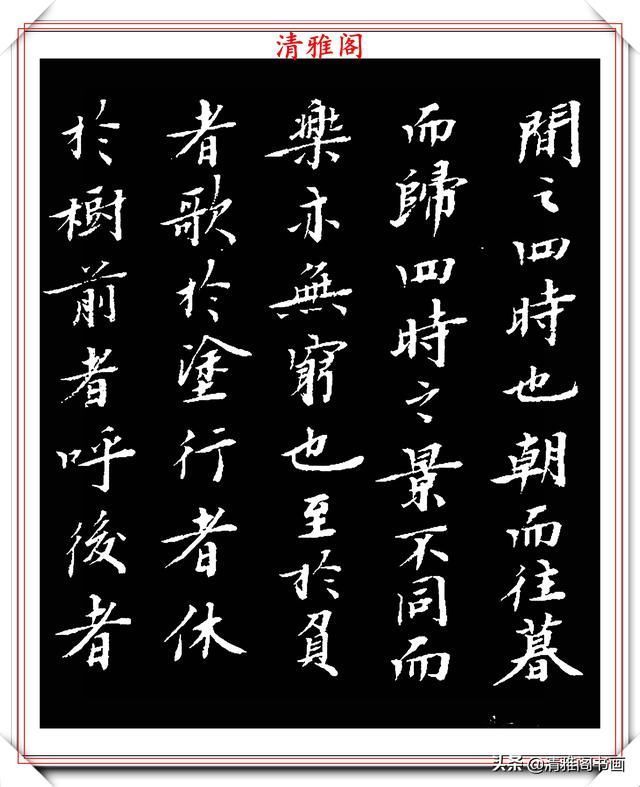 清雅阁
間之四時也朝而往暮
而歸四時之景不同而
樂亦無窮也至於負
者歌於塗行者休
於樹前者呼後者
头条@清雅阁书画